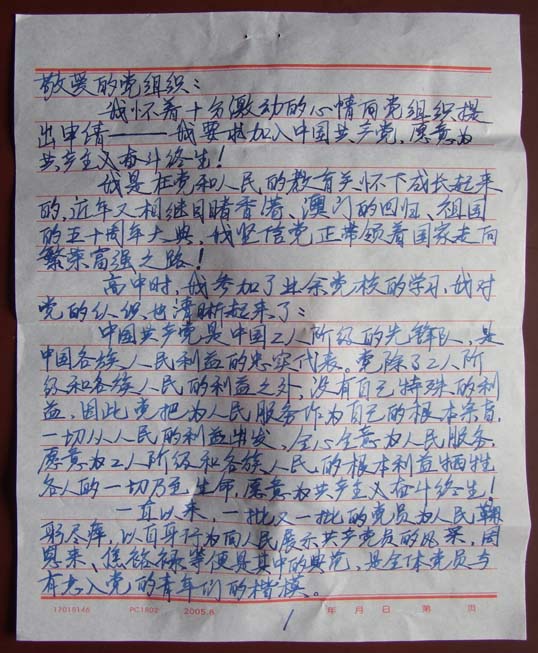 敬爱的党组织：
我怀着十分激动的心情向党组织提
出申请——我要求加入中国共产党，愿意为
共产主义奋斗终生！
我是在党和人民的教育关怀下成长起来
的，近年又相继目睹香港、澳门的回归、祖国
的五十周年大典，我坚信党正带领着国家走向
繁荣富强之路！
高中时，我参加了业余党校的学习，我对
党的认识也清晰起来了：
中国共产党是中国工人阶级的先锋队，是
中国各族人民利益的忠实代表。党除了工人阶
级和各族人民的利益之外，没有自己特殊的利
益，因此，党把为人民服务作为自己的根本宗旨，
一切从人民的利益出发，全心全意为人民服务，
愿意为工人阶级和各族人民的根本利益牺牲
各人的一切乃至生命，愿意为共产主义奋斗终生！
一直以来，一批又一批的党员为人民鞠
躬尽瘁，以自身行为向人民展示共产党员的风采，周
恩来、焦裕禄等便是其中的典范，是全体党员与
有志入党的青年们的楷模。
17015146 PC1802 2005.6. 1 年 月 日 第 页